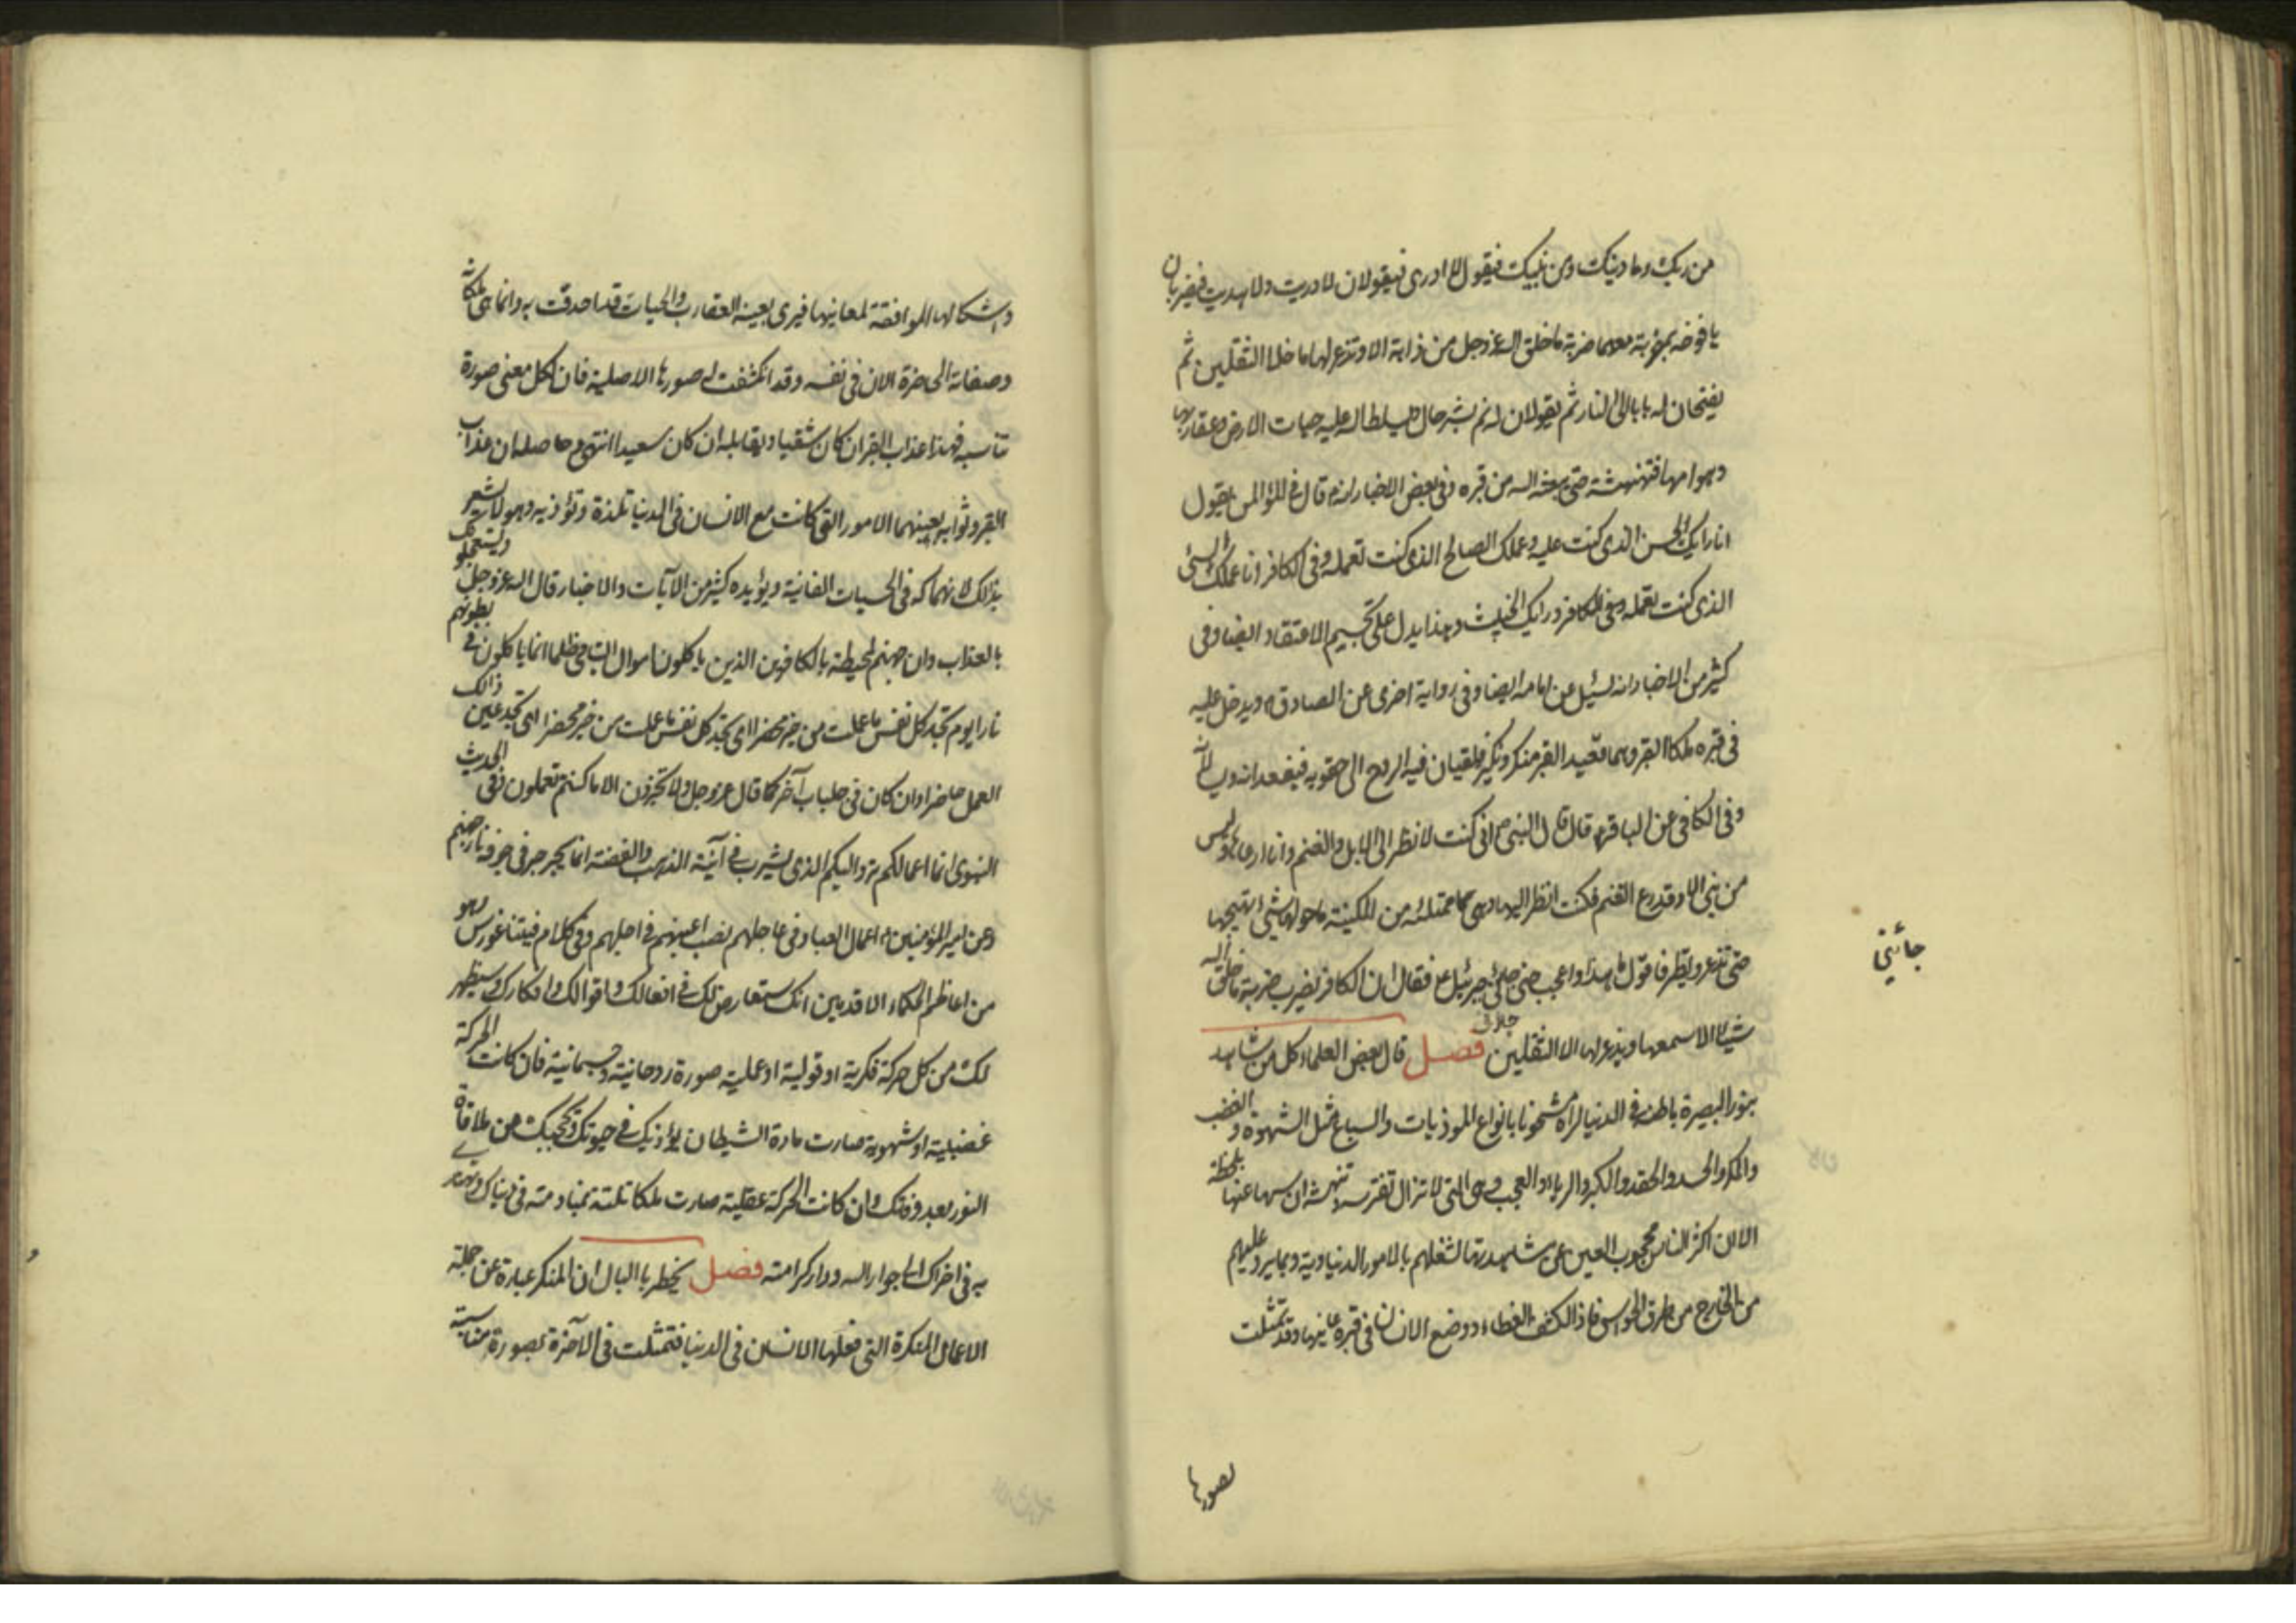 من ربك وما دينك ومن نبيك فيقول لا ادرى فيقولان لا دريت ولا هديت فيضربان
يافوخه بمرزبة معهما ضربة ما خلق الله عزوجل من دابة الا وتذعر لها ما خلا الثقلين ثم
يفتحان له بابا الى النار ثم يقولان له نم بشر حال ويسلط الله عليه حيات الارض وعقاربها
وهوامها فتنهشه حتى يبعثه الله من قبره وفى بعض الاخبار انه قال فى المؤمن يقول
انا رايك الحسن الذى كنت عليه وعملك الصالح الذى كنت تعمله وفى الكافر انا عملك السيئ
الذى كنت تعمله ورايك الخبيث وهذا يدل على تجسيم الاعتقاد ايضا وفى
كثير من الاخبار انه يسئل عن امامه ايضا وفى رواية اخرى عن الصادق ويدخل عليه
فى قبره ملكا القبر وهما قعيدا القبر منكر ونكير فيلقيان فيه الروح الى حقويه فيقعدانه ويسألانه
وفى الكافى عن الباقر قال قال النبى انى كنت لانظر الى الابل والغنم وانا ارعاها وليس
من نبى الا وقد رع الغنم فكنت انظر اليها وهى متملئه من المكينة ما حولها شئ يهيجها
حتى تذعر وتطير فاقول ما هذا واعجب حتى جائنى جبرئيل ع فقال ان الكافر يضرب ضربة ما خلق الله
شيئا الا سمعها ويذعر لها الا الثقلين فصل قال بعض العلماء كل من شاهد
بنور البصيرة باطنه فى الدنيا لراه مشحونا بانواع الموذيات والسباع مثل الشهوة والغضب
والمكر والحسد والحقد والكبر والرياء والعجب وهى التى لا تزال تفترسه وتنهشه ان سها عنها بلحظة
الا ان اكثر الناس محجوب العين عن مشاهدتها لشغلهم بالامور الدنياوية وبما يرد عليهم
من الخارج من طرق الحواس فاذا انكشف الغطاء ووضع الانسان فى قبره عاينها وقد تمثلت
جائنى
بصورها
واشكالها الموافقة لمعانيها فيرى بعينه العقارب والحيات قد احدقت به وانما هى ملكاته
وصفاته الحاضرة الان فى نفسه وقد انكشفت له صورها الاصلية فان لكل معنى صورة
تناسبه فهذا عذاب القبر ان كان شقيا ويقابله ان كان سعيدا انتهى وحاصله ان عذاب
القبر وثوابه بعينهما الامور التى كانت مع الانسان فى الدنيا تلذه وتؤذيه وهو لا يشعر
بذلك لانهماكه فى الحسيات الفانية ويؤيده كثير من الآيات والاخبار قال الله عزوجل ويستعجلونك
بالعذاب وان جهنم لمحيطة بالكافرين الذين ياكلون اموال اليتامى ظلما انما ياكلون فى بطونهم
نارا يوم تجد كل نفس ما عملت من خير محضرا اى تجد كل نفس ما عملت من خير محضرا اى تجد عين ذالك
العمل حاضرا وان كان فى جلباب آخر كما قال عزوجل ولا تجزون الا ما كنتم تعملون وفى الحديث
النبوى انما اعمالكم ترد اليكم الذى يشرب فى آنية الذهب والفضة انما يجرجر فى جوفه نار جهنم
وعن امير المؤمنين اعمال العباد فى عاجلهم نصب اعينهم فى اجلهم وفى كلام فيثاغورس وهو
من اعاظم الحكماء الاقدمين انك ستعارض لك فى افعالك واقوالك وافكارك وسيظهر
لك من كل حركة فكرية او قولية او عملية صورة روحانية وجسمانية فان كانت الحركة
غضبية او شهوية صارت مادة الشيطان يؤذيك فى حيوتك وتحجبك عن ملاقاة
النور بعد وفاتك وان كانت الحركة عقلية صارت ملكا تلتذ بمنادمته فى دنياك وتهتدى
به فى اخراك الى جوار الله ودار كرامته فصل يخطر بالبال ان المنكر عبارة عن جملة
الاعمال المنكرة التى فعلها الانسان فى الدنيا فتمثلت فى الآخرة بصورة مناسبة